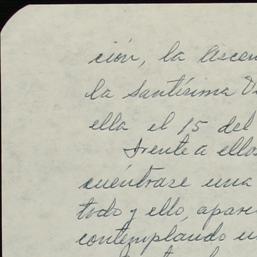 ción, la Ascen
la Santísima V
ella el 15 del
Frente a ellos
cuéntrase una
todo y ello, apare
contemplando u